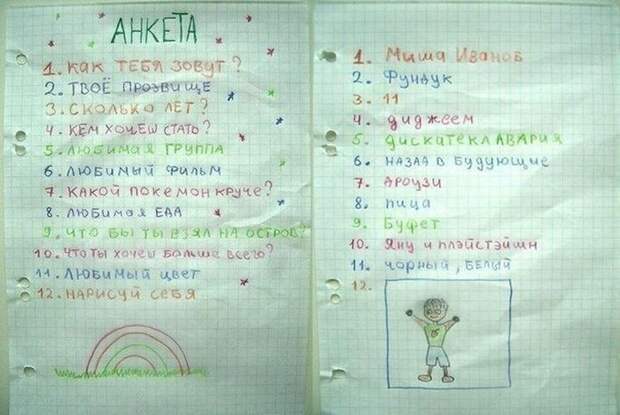 АНКЕТА
1. КАК ТЕБЯ ЗОВУТ?
2. ТВОЁ ПРОЗВИЩЕ
3. СКОЛЬКО ЛЕТ?
4. КЕМ ХОЧЕШ СТАТЬ?
5. ЛЮБИМАЯ ГРУППА
6. ЛЮБИМЫЙ ФИЛЬМ
7. КАКОЙ ПОКЕМОН КРУЧЕ?
8. ЛЮБИМАЯ ЕДА
9. ЧТО БЫ ТЫ ВЗЯЛ НА ОСТРОВ?
10. ЧТО ТЫ ХОЧЕШ БОЛЬШЕ ВСЕГО?
11. ЛЮБИМЫЙ ЦВЕТ
12. НАРИСУЙ СЕБЯ
1. Миша Иванов
2. Фундук
3. 11
4. диджеем
5. дискатека АВАРИЯ
6. НАЗАД в будующие
7. Дроузи
8. пица
9. Буфет
10. Яну и плэйстэйшн
11. чорный, БЕЛЫЙ
12.